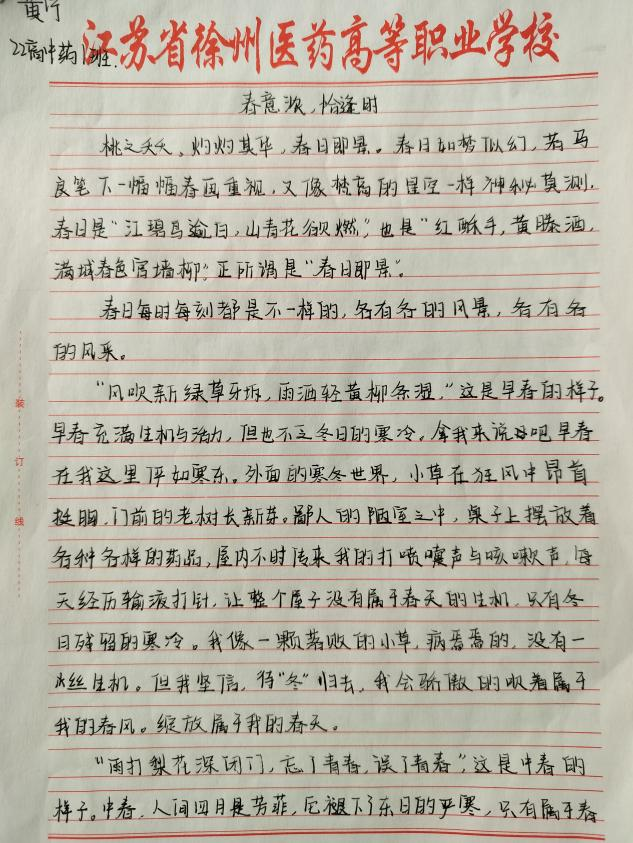 黄
22高中药1班.
江苏省徐州医药高等职业学校
春意浓,恰逢时
桃之夭夭、灼灼其华,春日即景。春日如梦似幻,若马
良笔下一幅幅春画重视,又像梵高的星空一样神秘莫测.
春日是“江碧鸟逾白,山青花欲燃”,也是“红酥手,黄滕酒,
满城春色宫墙柳”,正所谓是“春日即景”。
春日每时每刻都是不一样的,各有各的风景,各有各
的风采。
“风吹新绿草牙坼,雨洒轻黄柳条湿,”这是早春的样子。
早春充满生机与活力,但也不乏冬日的寒冷。拿我来说吧早春
在我这里俨如寒东。外面的寒冬世界,小草在狂风中昂首
挺胸,门前的老树长新芽。鄙人的陋室之中,桌子上摆放着
各种各样的药品,屋内不时传来我的打喷嚏声与咳嗽声,每
天经历输液打针,让整个屋子没有属于春天的生机,只有冬
日残留的寒冷。我像一颗落败的小草,病焉焉的,没有一
丝生机。但我坚信,待“冬”归去,我会骄傲的吹着属于
我的春风。绽放属于我的春天。
“雨打梨花深闭门,忘了青春,误了青春”,这是中春的
样子。中春,人间四月是芳菲,它褪下了东日的严寒,只有属于春
装
订
线